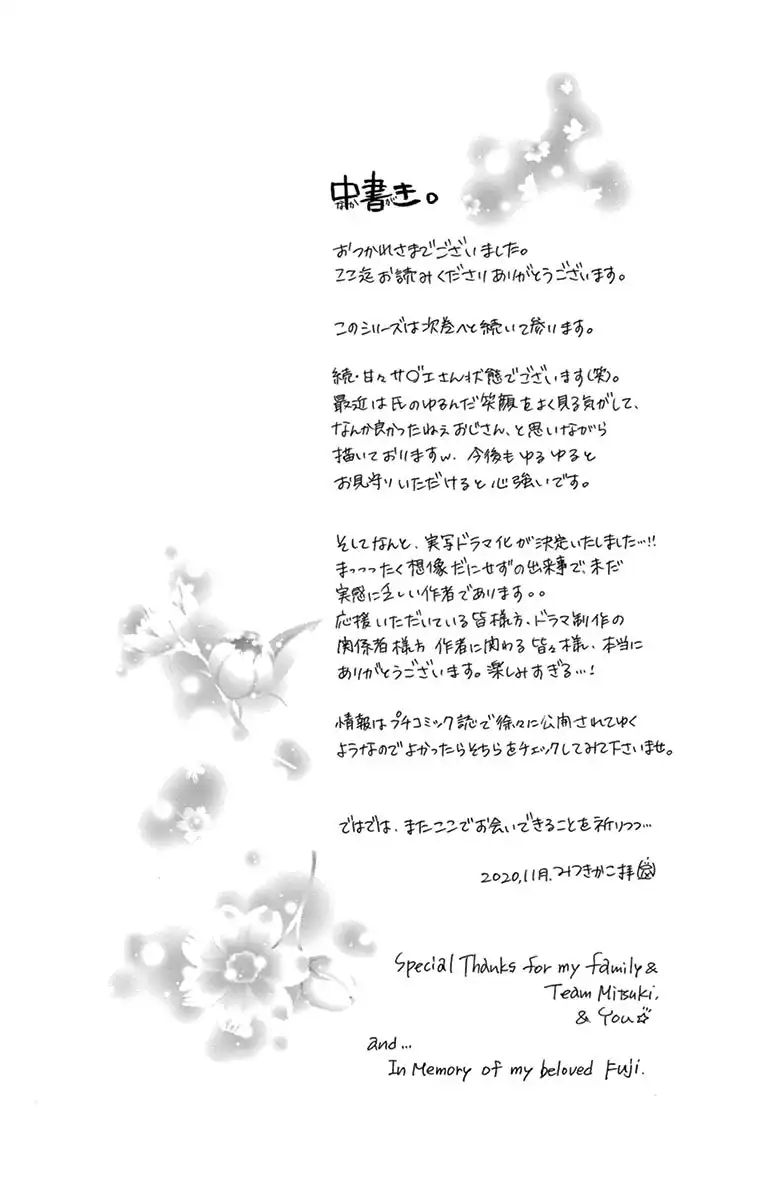 中書き。
おつかれさまでございました。
ここ迄お読みくださりありがとうございます。
このシリーズは次巻へと続いて参ります。
続・甘々サ○エさん状態でございます(笑)。
最近は氏のゆるんだ笑顔をよく見る気がして、
なんか良かったねぇおじさん、と思いながら
描いておりますw. 今後もゆるゆると
お見守りいただけると心強いです。
そしてなんと、実写ドラマ化が決定いたしました…!!
まっっったく想像だにせずの出来事で、未だ
実感に乏しい作者であります。。
応援いただいている皆様方、ドラマ制作の
関係者様方 作者に関わる皆々様、本当に
ありがとうございます。楽しみすぎる…!
情報はプチコミック誌で徐々に公開されてゆく
ようなのでよかったらそちらをチェックしてみて下さいませ。
ではでは、またここでお会いできることを祈りつつ…
2020,11月.みつきかこ拝
Special Thanks for my family &
Team Mitsuki.
& You☆
and...
In Memory of my beloved Fuji.